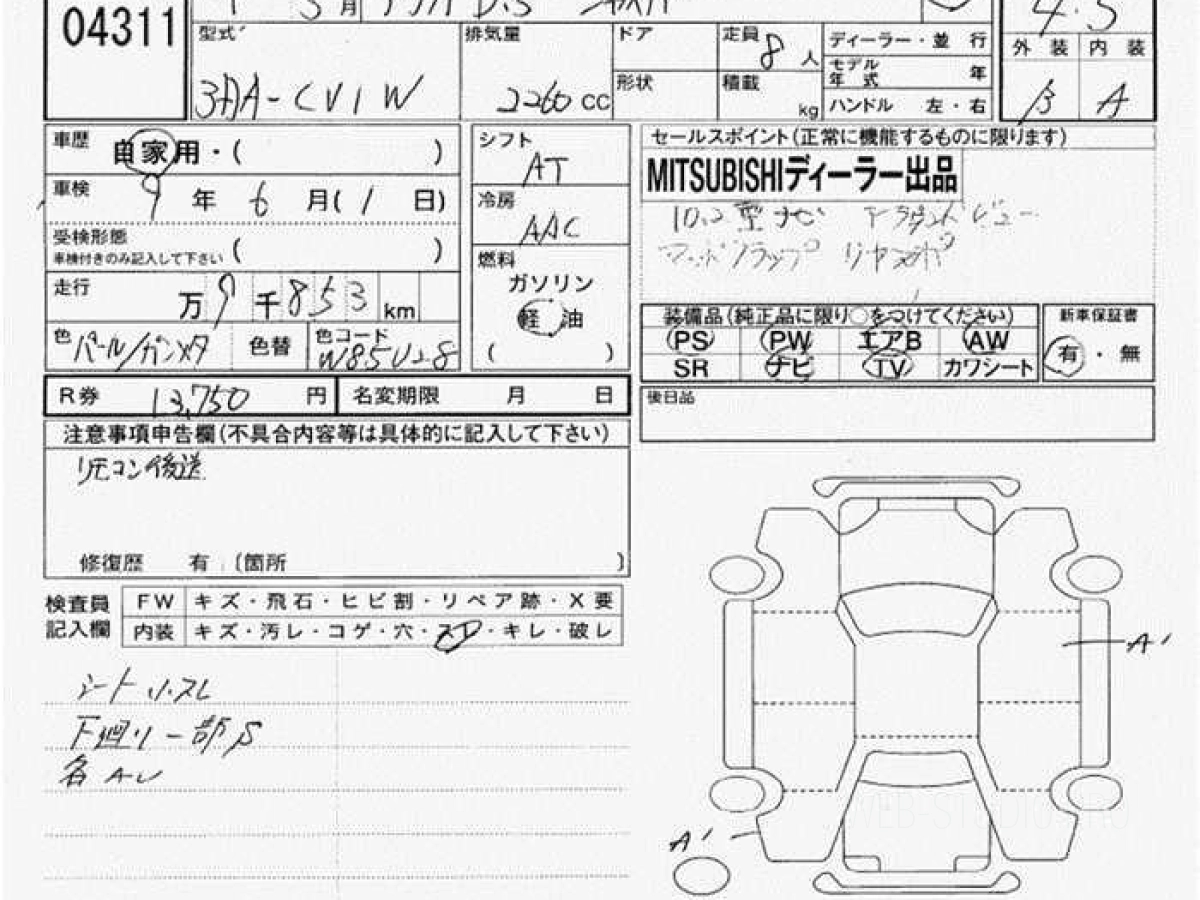 04311
月 デリカD:5 4.5
型式 排気量 ドア 定員 8 人 ディーラー・並 行 外 装 内 装
3DA-CV1W 2260 cc 形状 積載 kg モデル年 式 年 B A
ハンドル 左・右
車歴 自家用・( )
車検 9 年 6 月(1 日)
受検形態 ( )
車検付きのみ記入して下さい
走行 万 9 千 853 km
色 パール/ガンメタ 色替 色コード W85U28
シフト AT
冷房 AAC
燃料 ガソリン
軽 油
( )
セールスポイント(正常に機能するものに限ります)
MITSUBISHIディーラー出品
10.2型ナビ アラウンドビュー
マッドフラップ リヤ
装備品(純正品に限り○をつけてください)
PS PW エアB AW
SR ナビ TV カワシート
新車保証書
有・無
R券 13,750 円 名変期限 月 日
後日品
注意事項申告欄(不具合内容等は具体的に記入して下さい)
リモコン後送
修復歴 有 〔箇所 〕
検査員記入欄
FW キズ・飛石・ヒビ割・リペア跡・X 要
内装 キズ・汚レ・コゲ・穴・スレ・キレ・破レ
シート スレ
下廻り一部S
各AU
A'
A'